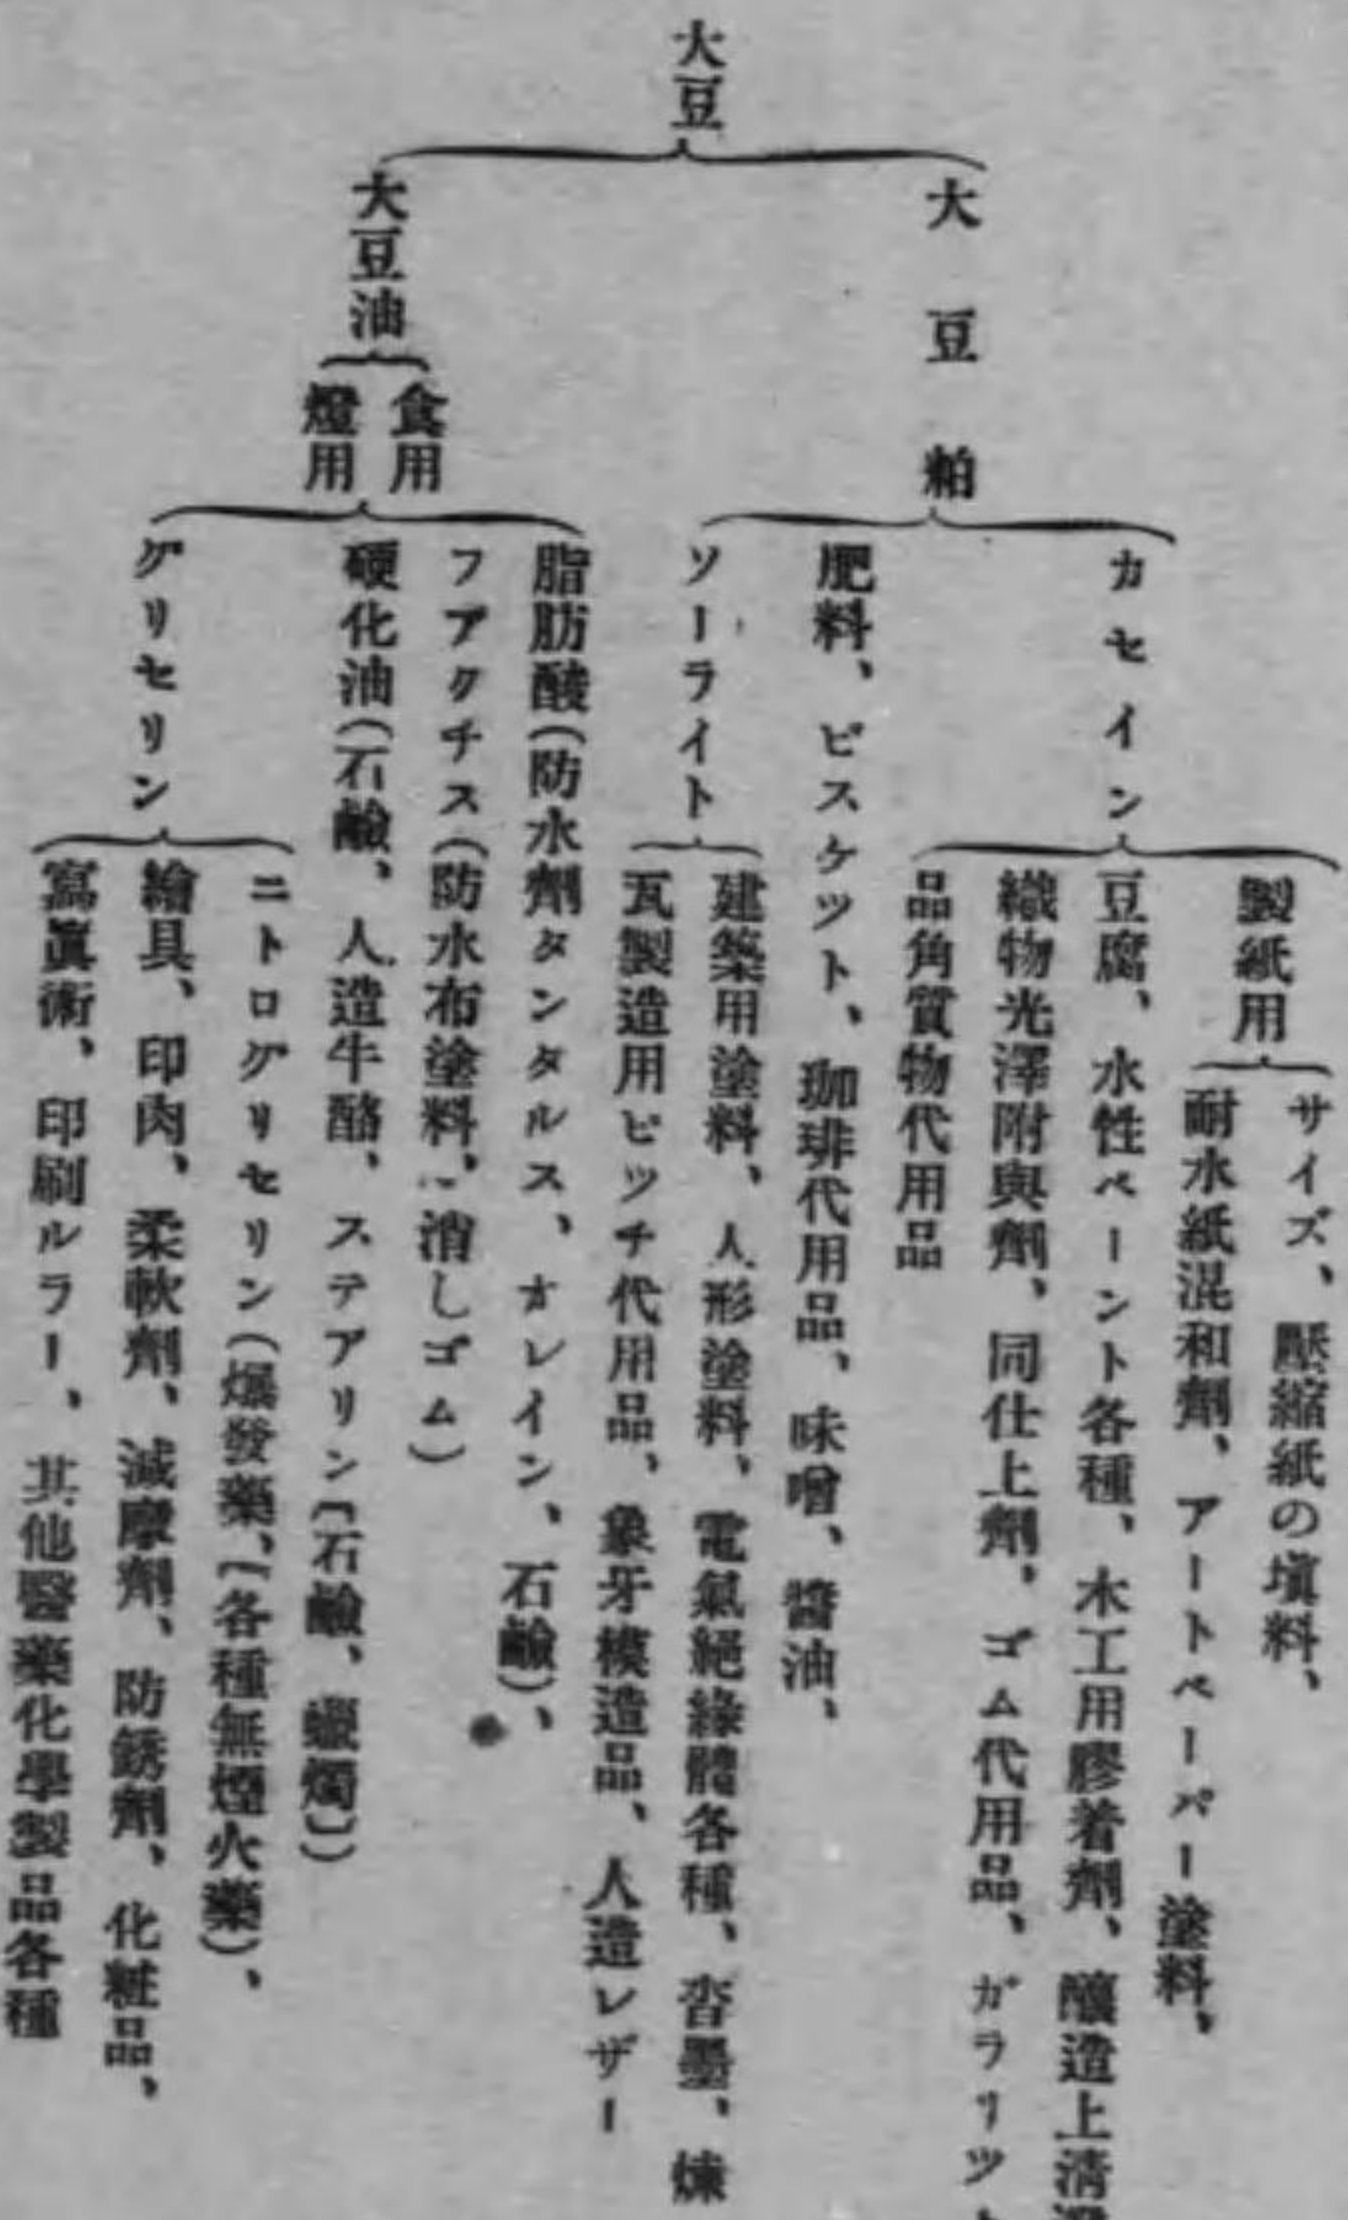 大豆
大豆粕
カセイン
製紙用
サイズ、壓縮紙の塡料、
耐水紙混和劑、アートペーパー塗料、
豆腐、水性ペーント各種、木工用膠着劑、釀造上淸
織物光澤附與劑、同仕上劑、ゴム代用品、ガラリツト
品角質物代用品
肥料、ビスケツト、珈琲代用品、味噌、醬油、
ソーライト
建築用塗料、人形塗料、電氣絕緣體各種、沓墨、煉
瓦製造用ピツチ代用品、象牙模造品、人造レザー
大豆油
食用
燈用
脂肪酸(防水劑タンタルス、オレイン、石鹼)、
フアクチス(防水布塗料、消しゴム)
硬化油(石鹼、人造牛酪、ステアリン〔石鹼、蠟燭〕)
グリセリン
ニトログリセリン(爆發藥、〔各種無煙火藥)、
繪具、印肉、柔軟劑、減摩劑、防銹劑、化粧品、
寫眞術、印刷ルラー、其他醫藥化學製品各種